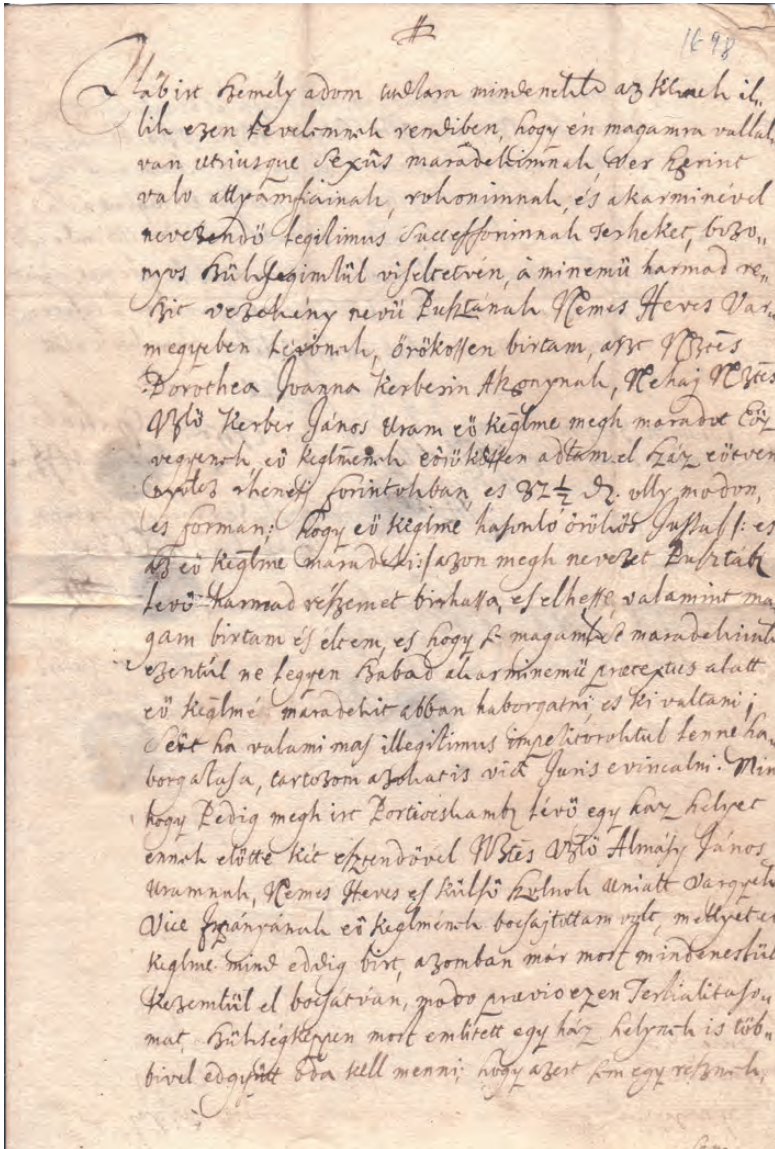 1698
Aláb irt Személy adom tudtara mindeneknek az kiknek il„
lik ezen Levelemnek rendiben, hogy én magamra vallal„
van utriusque Sexûs maradekimnak, ver szerint
valo attyámfiainak, rokonimnak, és akarminével
nevezendö legitimus Successorimnak terheket, bizo„
nyos Szükségimtül viseltetvén, à minemü harmad re„
szit vezekény nevü Pusztának Nemes Heves Var„
megyeben lévönek, örökössen birtam, aszt Nztes
Dorothea Joanna Kerberin Aszonynak, Nehaj Nztes
Vzlö Kerber János Uram eö keglme megh maradot Eöz
vegyenek, eö keglmenek eörökössen adtam el száz eötven
rhenes forintokban, es 82 1/2 dr. olly modon,
es forman; hogy eö keglme hasonló örökös Jussal /: es
az eö keglme maradeki :/ azon megh nevezet Pusztab
levö harmad részemet birhassa, es elhesse, valamint ma
gam birtam és eltem, es hogy se magam se maradekimk
ezentúl ne legyen szabad akarminemü prætextus alatt
eö keglmé maradekit abban haborgatni, es ki valtani;
Sött ha valami mas illegitimus impetitoroktul lenne ha„
borgatasa, tartozom azokat is via Juris evincalni. Min
hogy Pedig megh irt Portiocskamb lévö egy ház helyet
ennek elötte két esztendövel Nztes Vzlö Almásy János
Uramnak, Nemes Heves es Külsö Szolnok Unialt Vargyek
Vice Ispányának eö keglmének bocsajtottam volt, mellyet eö
keglme mind eddig birt, azomban már most mindenestül
kezemtül el bocsátván, modo prævio ezen Tertialitaso„
mat, szükségképpen most emlitett egy ház helynek is töb„
bivel edgyütt oda kell menni; hogy azert egy résznek,